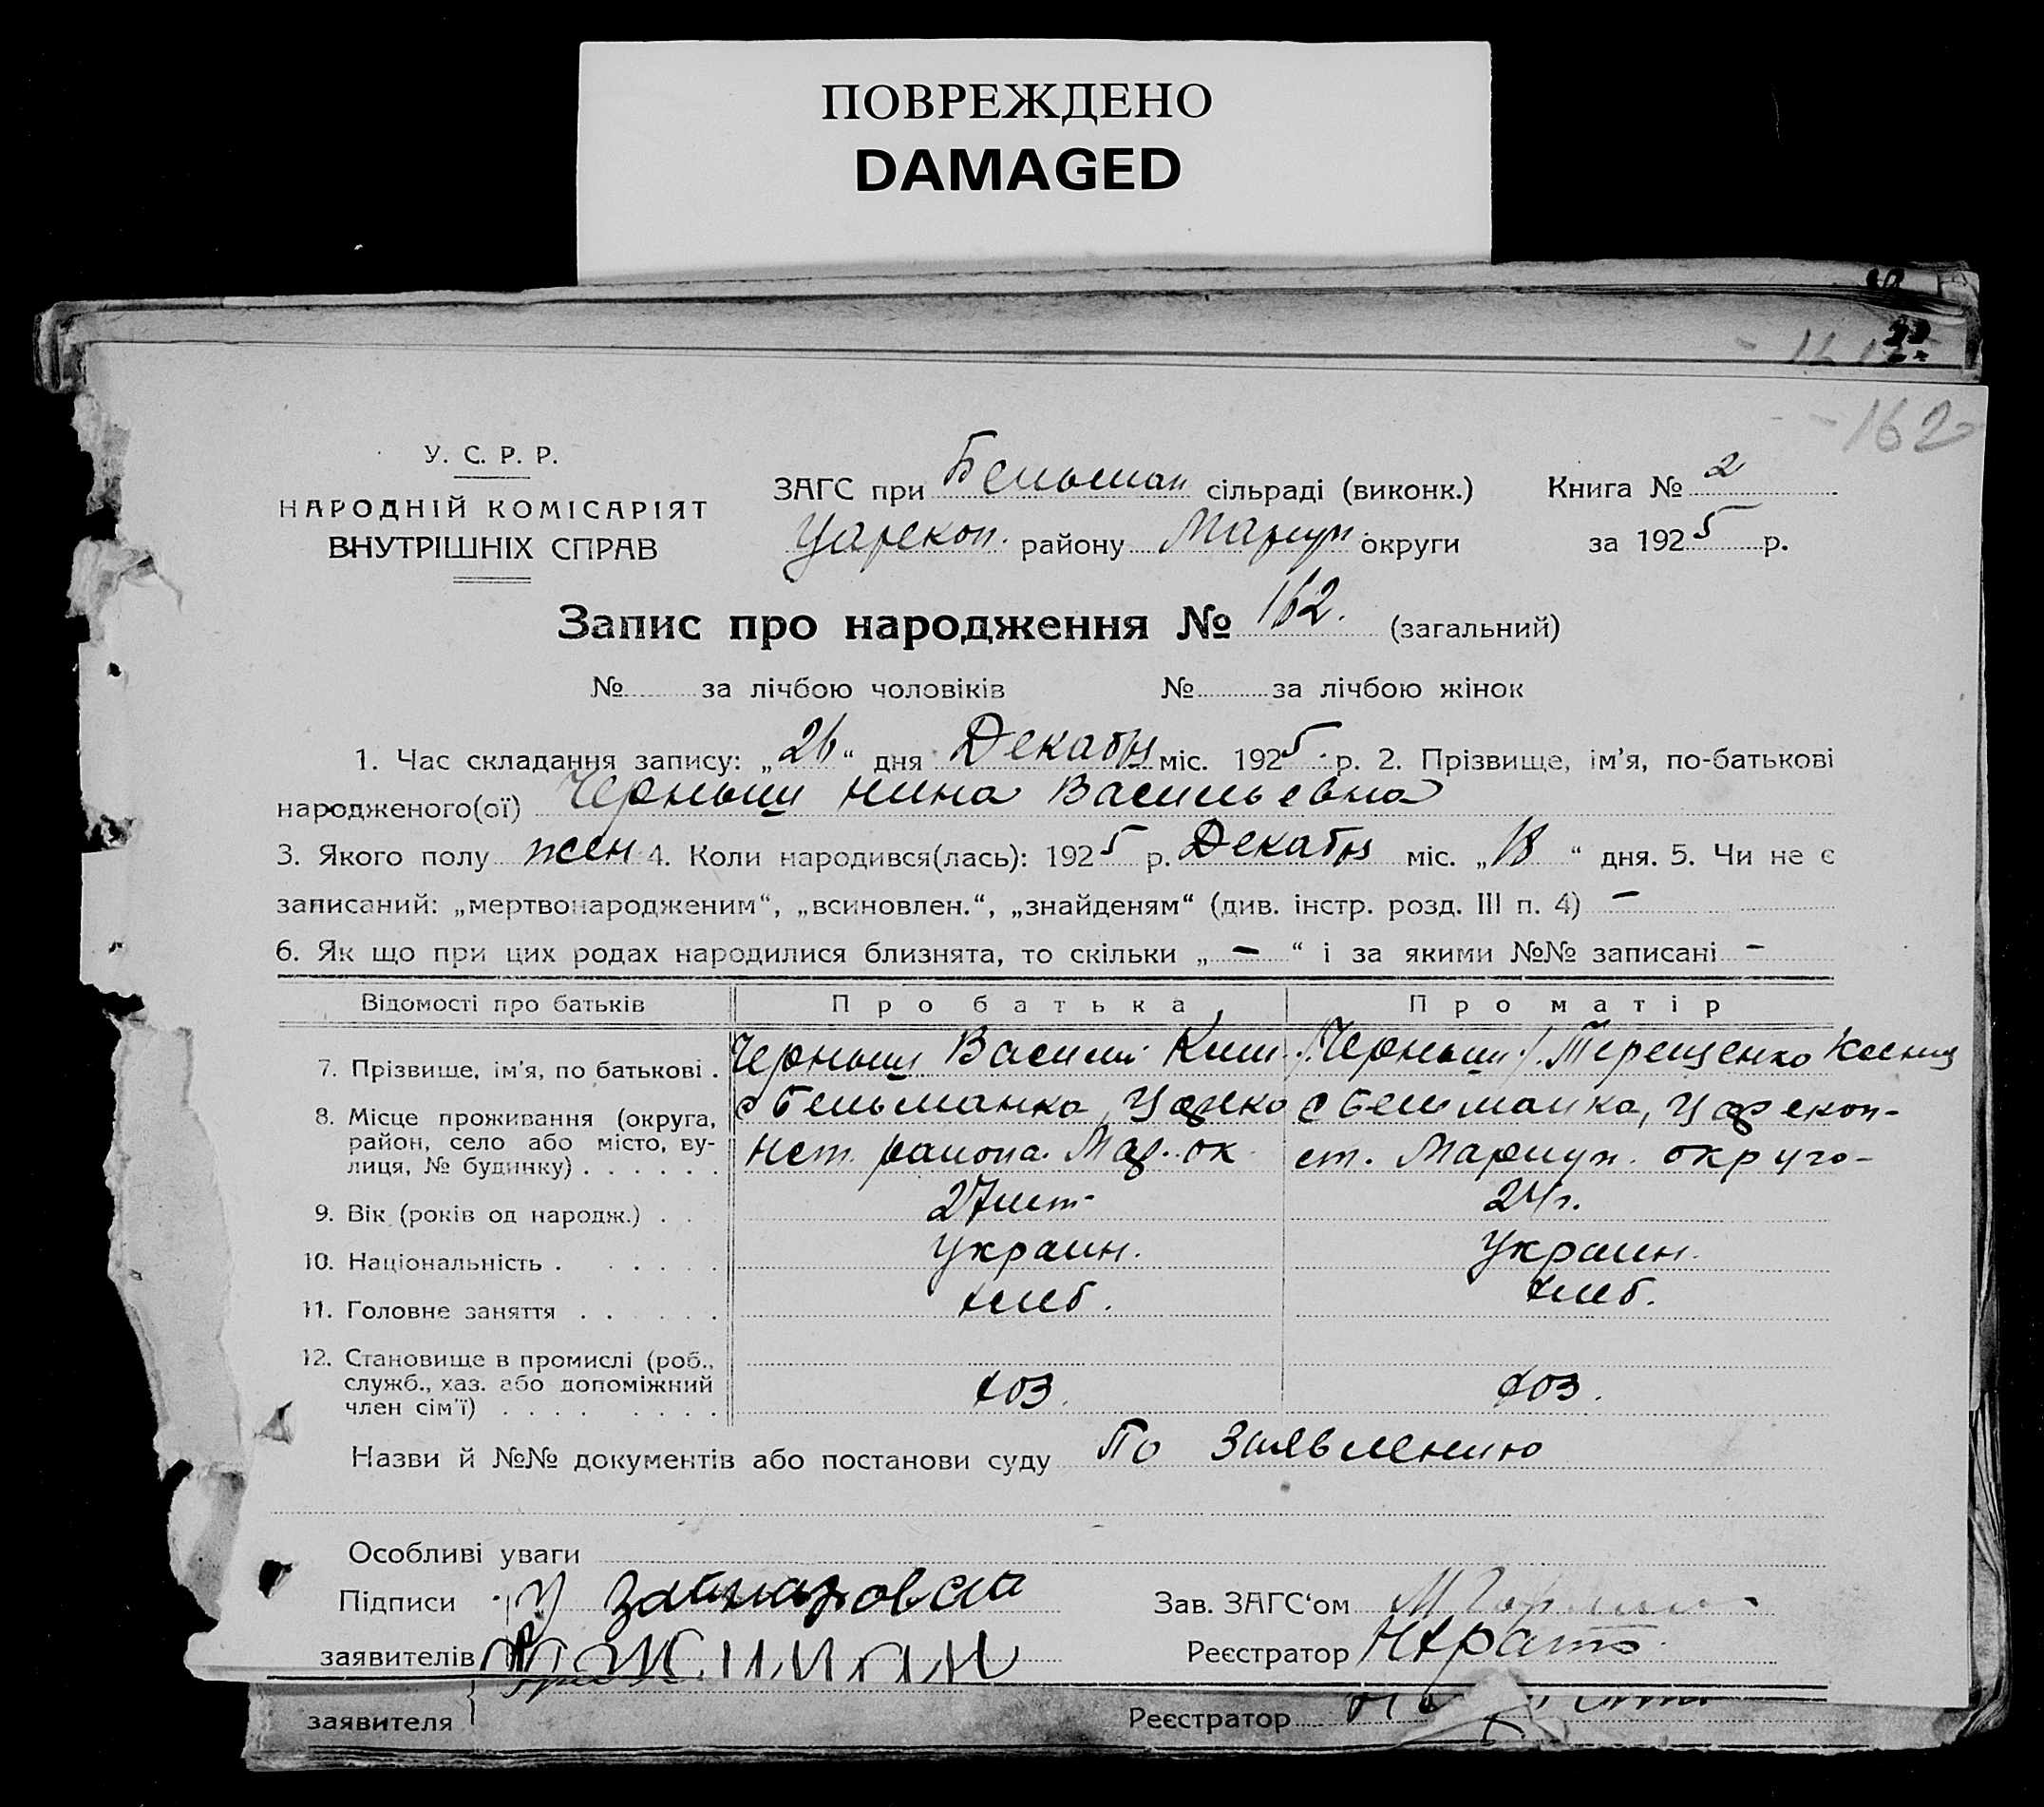 ПОВРЕЖДЕНО
DAMAGED
162
У. С. Р. Р.
НАРОДНІЙ КОМІСАРІЯТ
ВНУТРІШНІХ СПРАВ
ЗАГС при Бельман сільраді (виконк.)
Царекон. району Мариуп. округи
Книга № 2
за 1925 р.
Запис про народження № 162. (загальний)
№ за лічбою чоловіків № за лічбою жінок
1. Час складання запису: „26“ дня Декабр міс. 1925 р. 2. Прізвище, ім'я, по-батькові
народженого(ої) Черныш Нина Васильевна
3. Якого полу жен 4. Коли народився(лась): 1925 р. Декабр міс. „18“ дня. 5. Чи не є
записаний: „мертвонародженим“, „всиновлен.“, „знайденям“ (див. інстр. розд. III п. 4) —
6. Як що при цих родах народилися близнята, то скільки „—“ і за якими №№ записані —
Відомості про батьків Про батька Про матір
7. Прізвище, ім'я, по батькові . Черныш Василий /Черныш/ Терещенко
8. Місце проживання (округа, район, село або місто, вулиця, № будинку) . . . . . .
с Бельманка, Цареко
нст. района Мар. ок.
с Бельманка, Царекон-
ст. Мариуп. округо-
9. Вік (років од народж.) . . 27 лет 24 г.
10. Національність . . . . . . Украин. Украин.
11. Головне заняття . . . . . . хлеб. хлеб.
12. Становище в промислі (роб.,
служб., хаз. або допоміжний
член сім'ї) . . . . . . . . хоз. хоз.
Назви й №№ документів або постанови суду По заявлению
Особливі уваги
Підписи
заявителів
Зав. ЗАГС‘ом
Реєстратор
заявителя Реєстратор